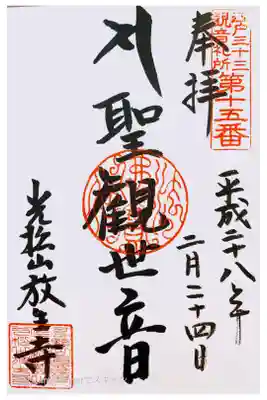 奉拝
江戸三十三
観音札所
第十五番
平成二十八年
二月二十四日
聖觀世音
光松山放生寺